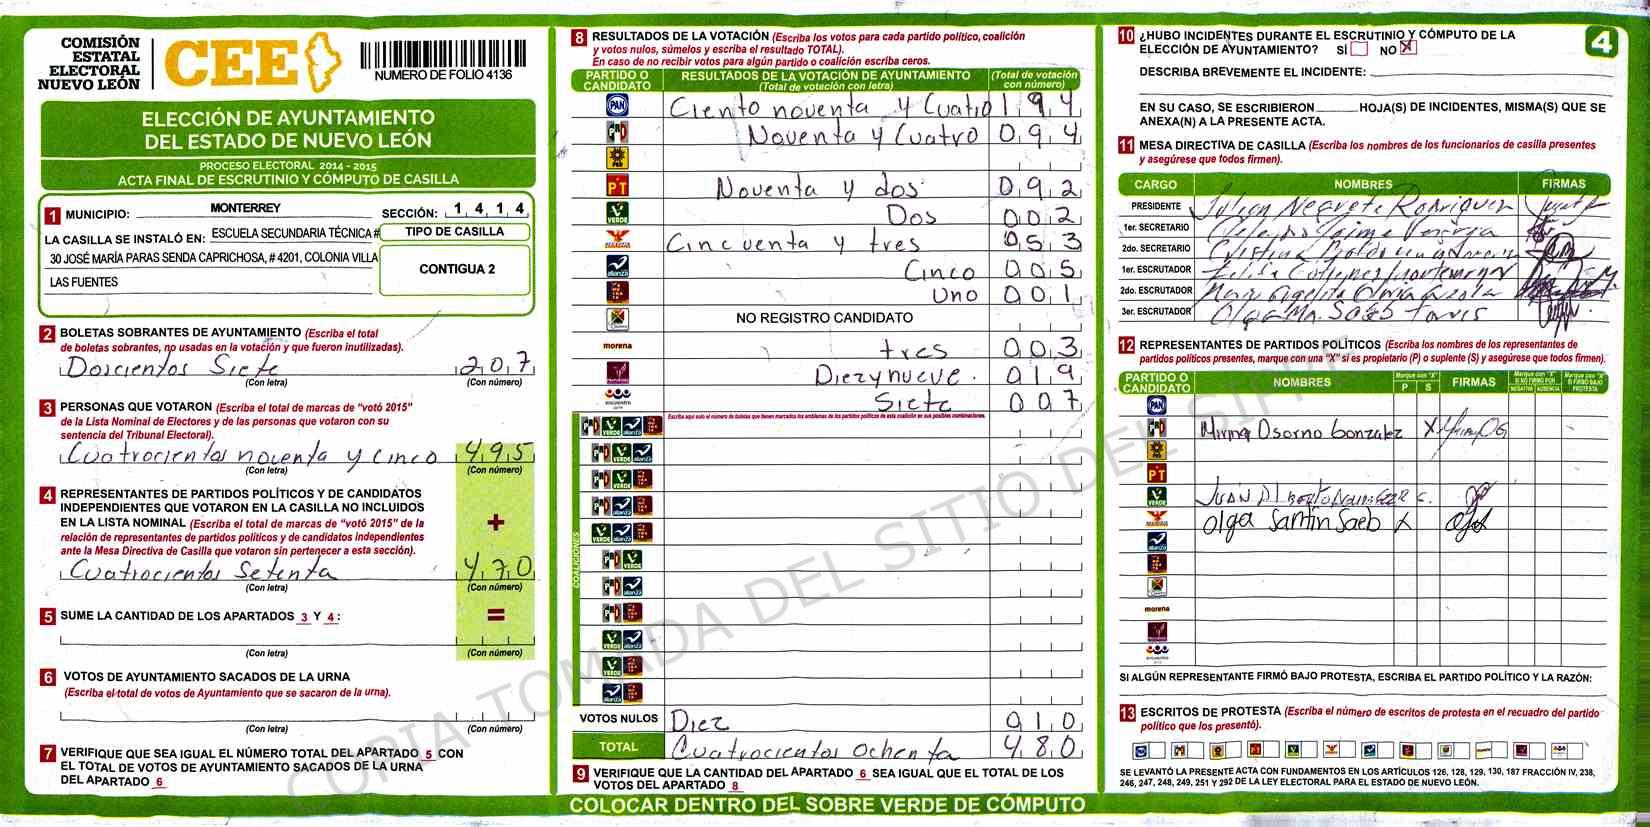 COMISIÓN
ESTATAL
ELECTORAL
NUEVO LEÓN
CEE
NUMERO DE FOLIO 4136
ELECCIÓN DE AYUNTAMIENTO
DEL ESTADO DE NUEVO LEÓN
PROCESO ELECTORAL 2014 - 2015
ACTA FINAL DE ESCRUTINIO Y CÓMPUTO DE CASILLA
1 MUNICIPIO: MONTERREY SECCIÓN: 1 4 1 4
LA CASILLA SE INSTALÓ EN: ESCUELA SECUNDARIA TÉCNICA #
30 JOSÉ MARÍA PARAS SENDA CAPRICHOSA, # 4201, COLONIA VILLA
LAS FUENTES
TIPO DE CASILLA
CONTIGUA 2
2 BOLETAS SOBRANTES DE AYUNTAMIENTO (Escriba el total
de boletas sobrantes, no usadas en la votación y que fueron inutilizadas).
Doscientos Siete 207
(Con letra) (Con número)
3 PERSONAS QUE VOTARON (Escriba el total de marcas de “votó 2015”
de la Lista Nominal de Electores y de las personas que votaron con su
sentencia del Tribunal Electoral).
Cuatrocientos noventa y cinco 495
(Con letra) (Con número)
4 REPRESENTANTES DE PARTIDOS POLÍTICOS Y DE CANDIDATOS
INDEPENDIENTES QUE VOTARON EN LA CASILLA NO INCLUIDOS
EN LA LISTA NOMINAL (Escriba el total de marcas de “votó 2015” de la
relación de representantes de partidos políticos y de candidatos independientes
ante la Mesa Directiva de Casilla que votaron sin pertenecer a esta sección).
+
Cuatrocientos Setenta 470
(Con letra) (Con número)
5 SUME LA CANTIDAD DE LOS APARTADOS 3 Y 4: =
(Con letra) (Con número)
6 VOTOS DE AYUNTAMIENTO SACADOS DE LA URNA
(Escriba el total de votos de Ayuntamiento que se sacaron de la urna).
(Con letra) (Con número)
7 VERIFIQUE QUE SEA IGUAL EL NÚMERO TOTAL DEL APARTADO 5 CON
EL TOTAL DE VOTOS DE AYUNTAMIENTO SACADOS DE LA URNA
DEL APARTADO 6
8 RESULTADOS DE LA VOTACIÓN (Escriba los votos para cada partido político, coalición
y votos nulos, súmelos y escriba el resultado TOTAL).
En caso de no recibir votos para algún partido o coalición escriba ceros.
PARTIDO O CANDIDATO RESULTADOS DE LA VOTACIÓN DE AYUNTAMIENTO (Total de votación con letra) (Total de votación con número)
PAN Ciento noventa y Cuatro 194
PRI Noventa y Cuatro 094
PRD
PT Noventa y dos 092
VERDE Dos 002
Cincuenta y tres 053
alianza Cinco 005
Uno 001
NO REGISTRO CANDIDATO
morena tres 003
Diezynueve. 019
Siete 007
Escriba aquí solo el número de boletas que tienen marcados los emblemas de los partidos políticos de esta coalición en sus posibles combinaciones.
COALICIONES
VOTOS NULOS Diez 010
TOTAL Cuatrocientos Ochenta 480
9 VERIFIQUE QUE LA CANTIDAD DEL APARTADO 6 SEA IGUAL QUE EL TOTAL DE LOS
VOTOS DEL APARTADO 8
COLOCAR DENTRO DEL SOBRE VERDE DE CÓMPUTO
10 ¿HUBO INCIDENTES DURANTE EL ESCRUTINIO Y CÓMPUTO DE LA
ELECCIÓN DE AYUNTAMIENTO? SÍ NO X
4
DESCRIBA BREVEMENTE EL INCIDENTE:
EN SU CASO, SE ESCRIBIERON HOJA(S) DE INCIDENTES, MISMA(S) QUE SE
ANEXA(N) A LA PRESENTE ACTA.
11 MESA DIRECTIVA DE CASILLA (Escriba los nombres de los funcionarios de casilla presentes
y asegúrese que todos firmen).
CARGO NOMBRES FIRMAS
PRESIDENTE Julian Negrete Rodriguez
1er. SECRETARIO
2do. SECRETARIO
1er. ESCRUTADOR
2do. ESCRUTADOR
3er. ESCRUTADOR Olga Ma.
12 REPRESENTANTES DE PARTIDOS POLÍTICOS (Escriba los nombres de los representantes de
partidos políticos presentes, marque con una “X” si es propietario (P) o suplente (S) y asegúrese que todos firmen).
PARTIDO O CANDIDATO NOMBRES Marque con “X” P S FIRMAS Marque con “X” SI NO FIRMÓ POR NEGATIVA AUSENCIA Marque con “X” SI FIRMÓ BAJO PROTESTA
PAN
Mirna Osorno Gonzalez X
PT
VERDE JUAN
Olga Santin Saeb X
morena
SI ALGÚN REPRESENTANTE FIRMÓ BAJO PROTESTA, ESCRIBA EL PARTIDO POLÍTICO Y LA RAZÓN:
13 ESCRITOS DE PROTESTA (Escriba el número de escritos de protesta en el recuadro del partido
político que los presentó).
SE LEVANTÓ LA PRESENTE ACTA CON FUNDAMENTOS EN LOS ARTÍCULOS 126, 128, 129, 130, 187 FRACCIÓN IV, 238,
246, 247, 248, 249, 251 Y 292 DE LA LEY ELECTORAL PARA EL ESTADO DE NUEVO LEÓN.
COPIA TOMADA DEL SITIO DEL SIPRE